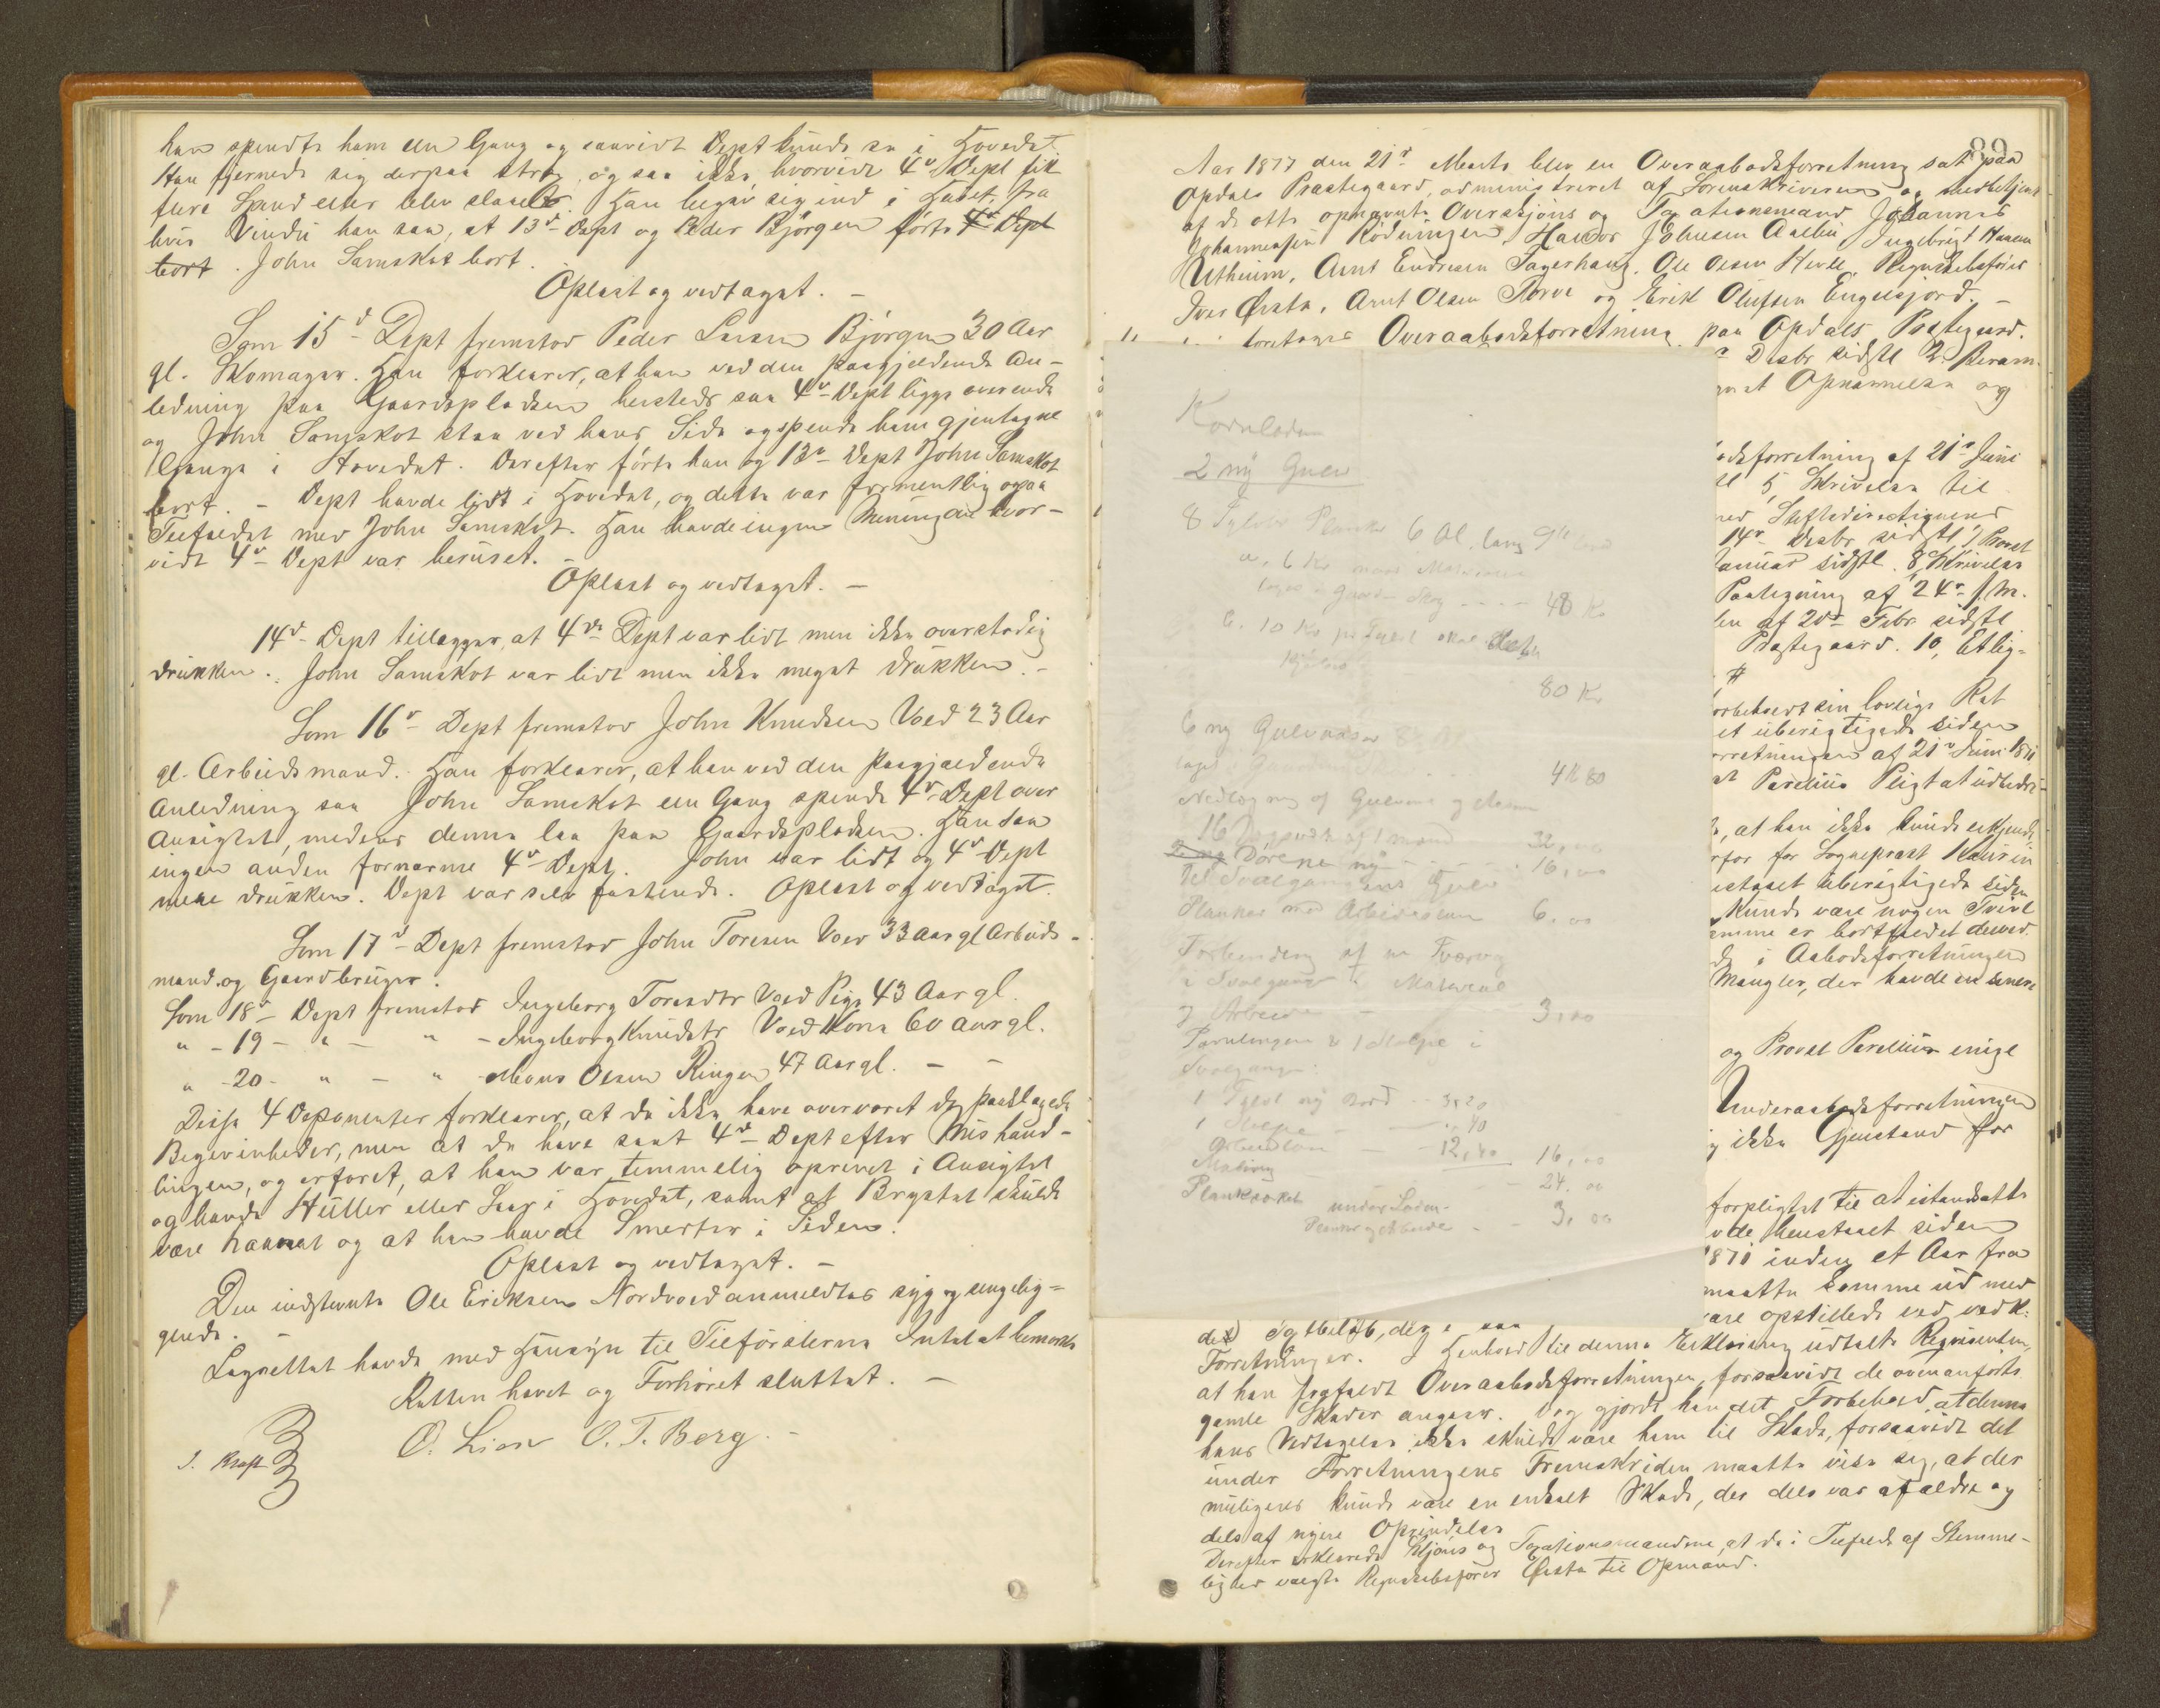 han spendte ham een Gang og saavidt Dept kunde se i Hovedet.
Han fjernede sig derpaa strax og saa ikke, hvorvidt 4de Dept fik
flere Spand eller blev slaaet. Han begav sig ind i Huset, fra
hvis Vindu han saa, at 13de Dept og Peder Bjørgen førte 4de Dept
bort. John Samskot bort.
Oplæst og vedtaget. –
Som 15de Dept fremstod Peder Larsen Bjørgen 30 Aar
gl. Skomager. Han forklarer, at han ved den paagjældende An-
ledning paa Gaardspladsen hersteds saa 4de Dept ligge overende
og John Samskot staa ved hans Side og spende ham gjentagne
Gange i Hovedet. Derefter førte han og 13de Dept John Samskot
bort. – Dept havde lidt i Hovedet, og dette var formentlig ogsaa
Tilfældet med John Samskot. Han havde ingen Mening om hvor-
vidt 4de Dept var beruset. –
Oplæst og vedtaget. –
14de Dept tillægger, at 4de Dept var lidt men ikke overstadig
drukken. John Samskot var lidt men ikke meget drukken. –
Som 16de Dept fremstod John Knudsen Voed 23 Aar
gl. Arbeidsmand. Han forklarer, at han ved den paagjældende
Anledning saa John Samskot een Gang spende 4de Dept over
Ansigtet, medens denne laa paa Gaardspladsen. Han saa
ingen anden fornærme 4de Dept. John var lidt og 4de Dept
mere drukken. Dept var selv fastende. Oplæst og vedtaget.
Som 17de Dept fremstod John Toresen Voed 33 Aar gl Arbeids-
mand og Gaardbruger.
Som 18de Dept fremstod Ingeborg Toresdtr Voed Pige 43 Aar gl.
" – 19 – " – " – Ingeborg Knudsdtr Voed Kone 60 Aar gl.
" – 20 – " – " Mons Olsen Ringen 47 Aar gl. – –
Disse 4 Deponenter forklarer, at de ikke have overværet de paaklagede
Begivenheder, men at de have seet 4de Dept efter Mishand-
lingen, og erfaret, at han var temmelig oprevet i Ansigtet
og havde Huller eller Saar i Hovedet, samt at Brystet skulde
være and at han havde Smerter i Siden.
Oplæst og vedtaget. –
Den indstevnte Ole Eriksen Nordvoed anmeldtes syg og sengelig-
gende. –
Lagrettet havde med Hensyn til Tilførslerne Intet at bemærke
Retten hævet og Forhøret sluttet. –
J. Kraft O. Lien O. T. Berg. –
89
Aar 1877 den 21de Marts blev en Overaabodsforretning sat paa
Opdals Præstegaard, administreret af Sorenskriveren og medbetjent
af de otte opnævnte Overskjøns og Taxationsmænd Johannes
Johannessen Rødningen, Haldor Johnsen Aalbu, Ingebrigt Hansen
Utheim, Arnt Endresen Sagerhaug, Ole Olsen Hevle, Regnskabsfører
Iver Ørsta, Arnt Olsen Torve og Erik Olufsen Engelsjord. –
foretages Overaabodsforretning paa Opdals Præstegaard.
Desbr sidstl 2 Beram-
Opnævnelse og
odsforretning af 21de Juni
5, Skrivelse til
med Stiftsdirectionens
14de Desbr sidstl 7, Provst
Januar sidstl. 8, Skrivelse
Paategning af 24de f. M.
en af 20de Febr. sidstl
Præstegaard. 10, Etlig-
#
orbeholdt sin lovlige Ret
et uberigtigede siden
rretningen af 21de Juni 1871
Parelius Pligt at udbedre
, at han ikke kunde erkjende
rfor for Sogneprest Kaurin
estaaet uberigtigede siden
kunde være nogen Tvivl
emme er bortfaldet derved.
i Aabodsforretningen
Mangler, der havde en senere
og Provst Parelius enige
Underaabodsforretningen
ikke Gjenstand for
forpligtet til at istandsætte
vde henstaaet siden
1871 inden et Aar fra
maatte komme ud med
være opstillede ved vedk:
Kornladen
2 ny Gulv
8 Tylvter Planker 6 Al. lang 9"
a. 6 Kr naar Materialer
tages i Gaardens Skog - - - - 48 Kr
C. 10 Kr pr Tylvt skal
kjøbes 80 Kr
6 ny Gulvaaser
taget 4 K 80
Nedlægning af Gulvene og Aasene
16 Dagsverk af 1 mand 32,00
Dørene ny - - - - 16,00
Til Svalgangens Gulv
Planker med Arbeidsløn 6.00
Forbindning af en
i Svalgangen Material
og Arbeide – 3,00
1 Stolpe i
Svalgangen:
1 Tylvt ny Bord - - 3,20
1 Stolpe – ,40
Arbeidsløn – 12,40 16,00
Maling - 24.00
under Laden-
Planker og Arbeide - - 3,00
det
Forretninger. I Henhold til denne Erklæring udtalte Rekvirenten,
at han frafaldt Overaabodsforretningen, forsaavidt de ovenanførte
gamle Skader angaar. Dog gjorde han det Forbehold, at denne
hans Vedtagelse ikke skulde være ham til Skade, forsaavidt det
under Forretningens Fremskriden maatte vise sig, at der
muligens kunde være en enkelt Skade, der dels var af ældre og
dels af nyere Oprindelse
Derefter erklærede Skjøns og Taxationsmændene, at de i Tilfælde af Stemme-
lighed valgte Regnskabsfører Ørsta til Opmand.